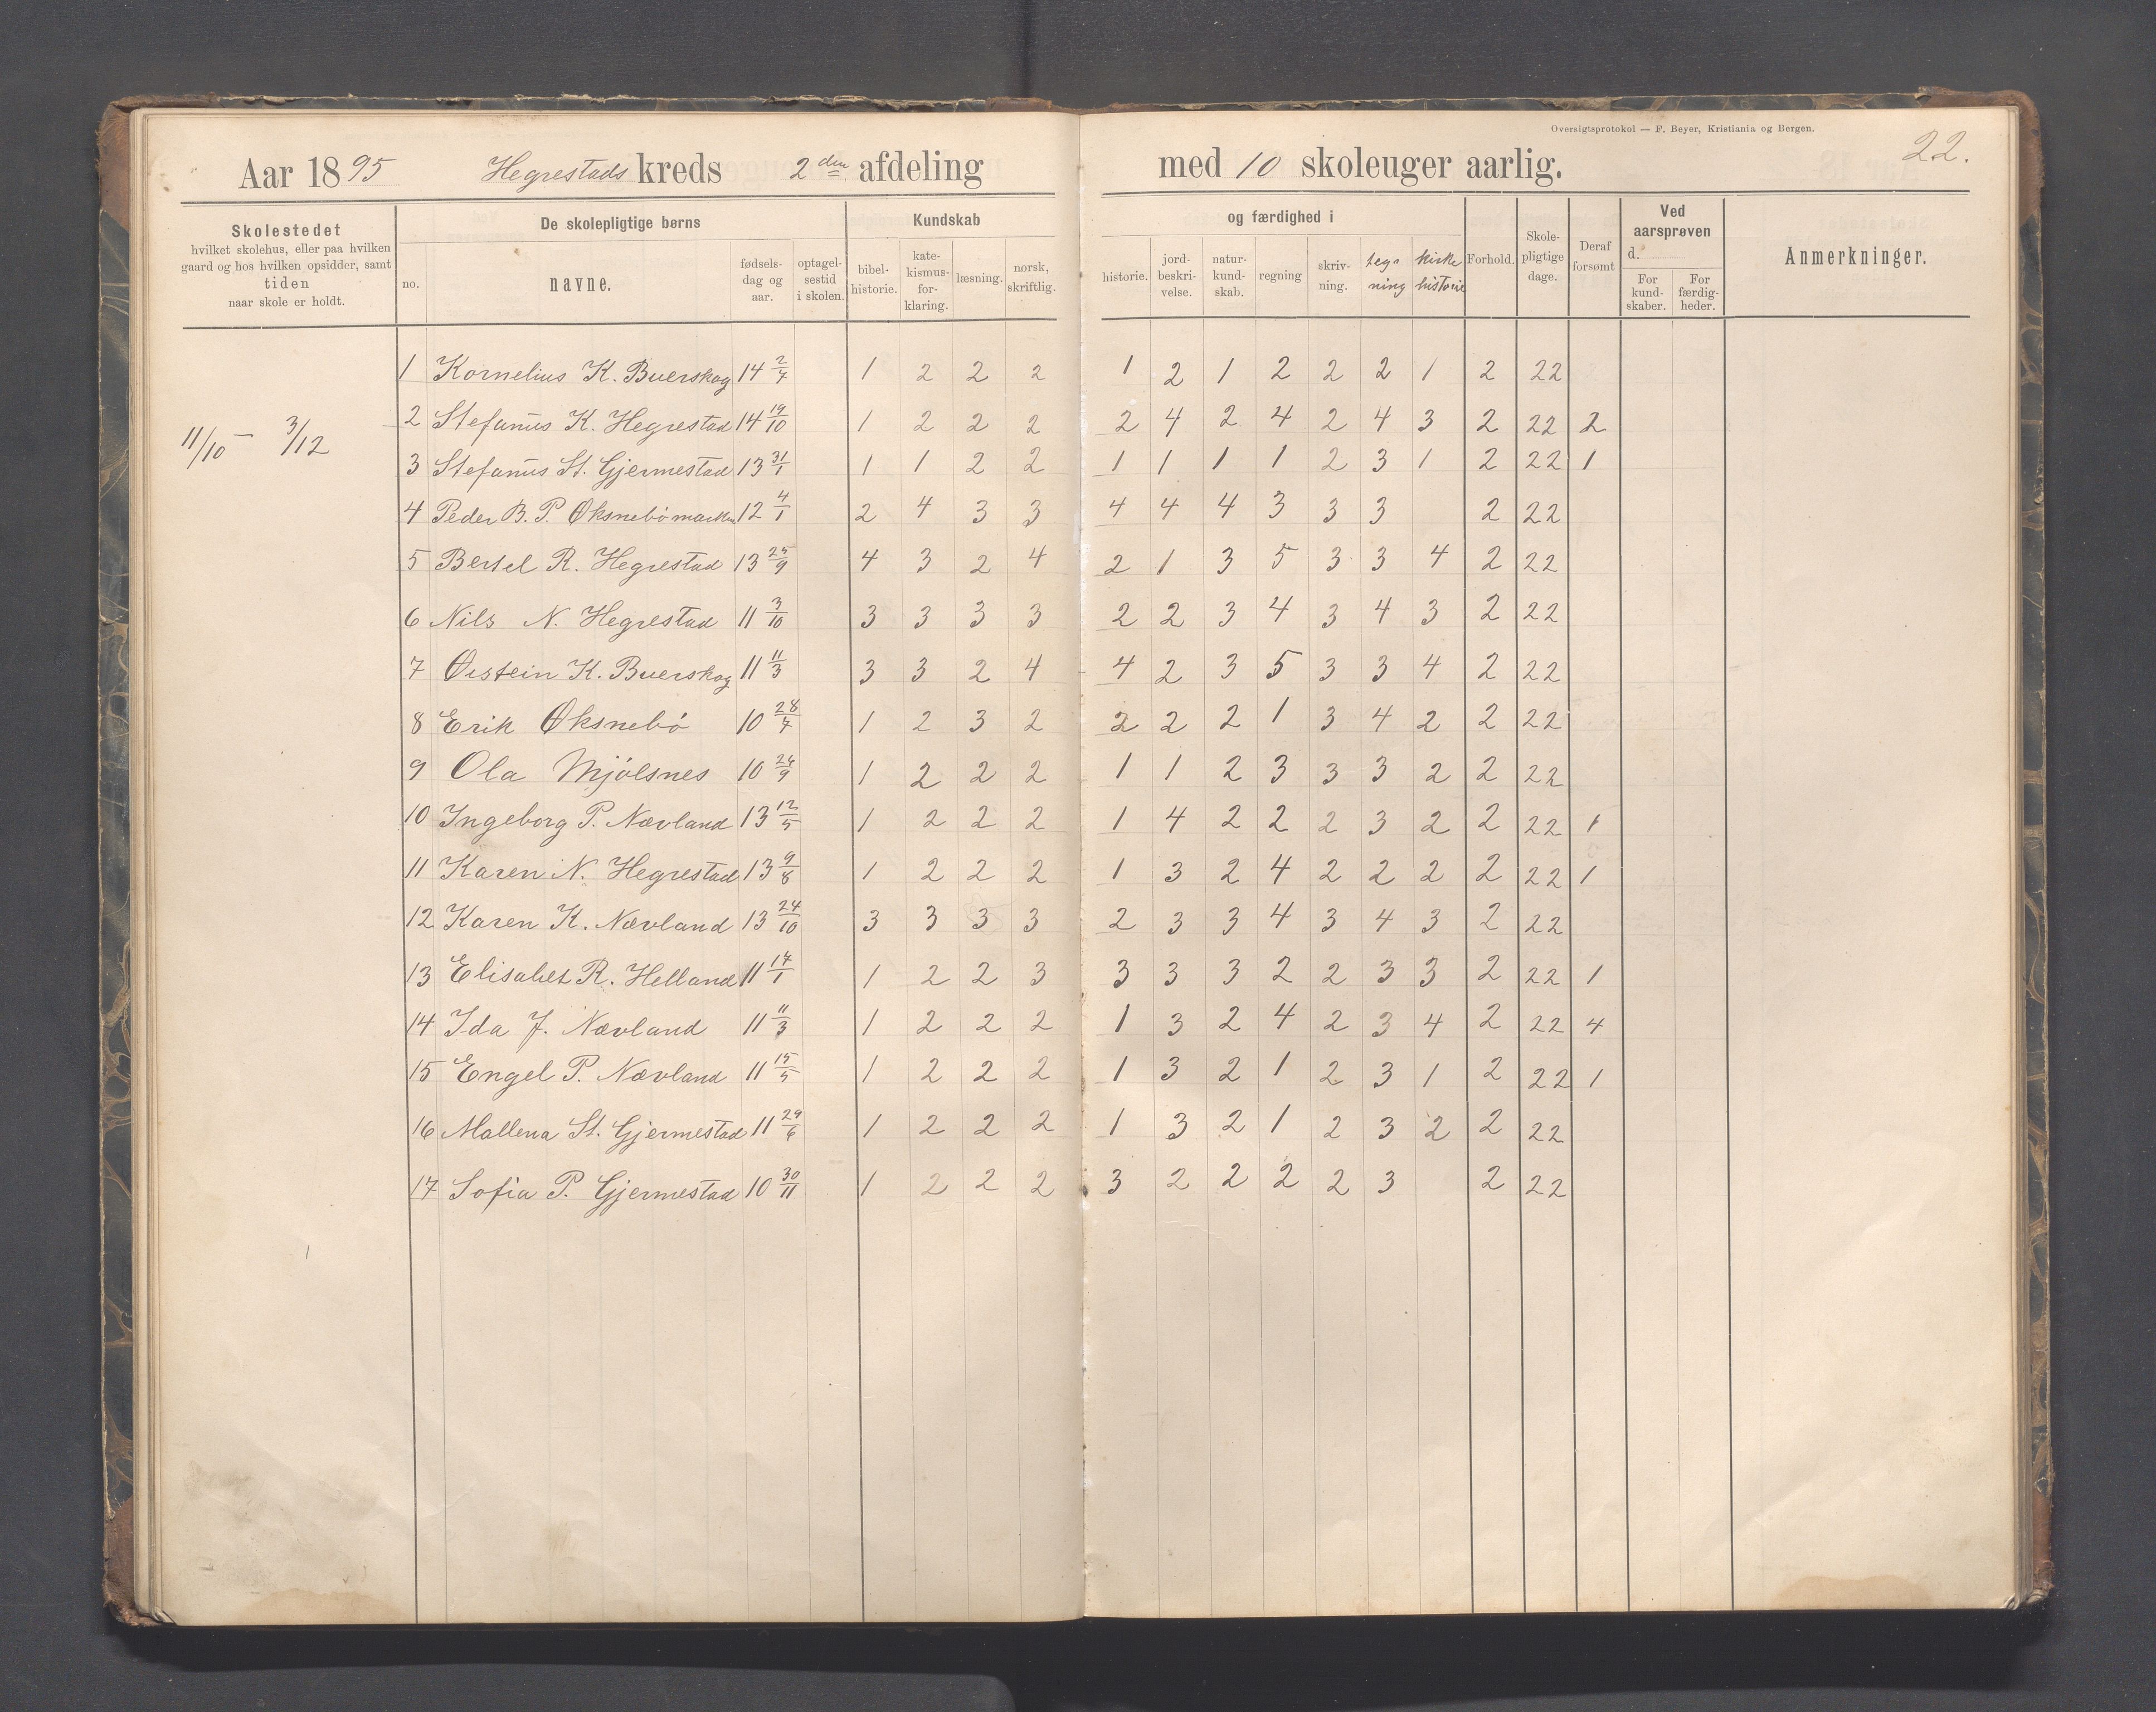 Oversigtsprotokol — F. Beyer, Kristiania og Bergen.
22.
Aar 1895 Hegrestads kreds 2den afdeling med 10 skoleuger aarlig.
Skolestedet hvilket skolehus, eller paa hvilken gaard og hos hvilken opsidder, samt tiden naar skole er holdt.
De skolepligtige børns
Kundskab og færdighed i
no. navne. fødsels-dag og aar. optagel-sestid i skolen. bibel-historie. kate-kismus-for-klaring. læsning. norsk, skriftlig. historie. jord-beskri-velse. natur-kund-skab. regning skriv-ning. tegning kirkehistorie Forhold. Skole-pligtige dage. Deraf forsømt
Ved aarsprøven d.
For kund-skaber. For færdig-heder.
Anmerkninger.
11/10 – 3/12
1 Kornelius K. Buerskog 14 2/4 1 2 2 2 1 2 1 2 2 2 1 2 22
2 Stefanus K. Hegrestad 14 19/10 1 2 2 2 2 4 2 4 2 4 3 2 22 2
3 Stefanus St. Gjermestad 13 31/1 1 1 2 2 1 1 1 1 2 3 1 2 22 1
4 Peder B. P. Øksnebømarken 12 4/1 2 4 3 3 4 4 4 3 3 3 2 22
5 Bertel R. Hegrestad 13 25/9 4 3 2 4 2 1 3 5 3 3 4 2 22
6 Nils N. Hegrestad 11 3/10 3 3 3 3 2 2 3 4 3 4 3 2 22
7 Øistein K. Buerskog 11 11/3 3 3 2 4 4 2 3 5 3 3 4 2 22
8 Erik Øksnebö 10 28/7 1 2 3 2 2 2 2 1 3 4 2 2 22
9 Ola Mjölsnes 10 24/9 1 2 2 2 1 1 2 3 3 3 2 2 22
10 Ingeborg P. Nævland 13 12/5 1 2 2 2 1 4 2 2 2 3 2 2 22 1
11 Karen N. Hegrestad 13 9/8 1 2 2 2 1 3 2 4 2 2 2 2 22 1
12 Karen K. Nævland 13 24/10 3 3 3 3 2 3 3 4 3 4 3 2 22
13 Elisabet R. Helland 11 17/1 1 2 2 3 3 3 3 2 2 3 3 2 22 1
14 Ida J. Nævland 11 11/3 1 2 2 2 1 3 2 4 2 3 4 2 22 4
15 Engel P. Nævland 11 15/5 1 2 2 2 1 3 2 1 2 3 1 2 22 1
16 Mallena St. Gjermestad 11 29/6 1 2 2 2 1 3 2 1 2 3 2 2 22
17 Sofia P. Gjermestad 10 30/11 1 2 2 2 3 2 2 2 2 3 2 22